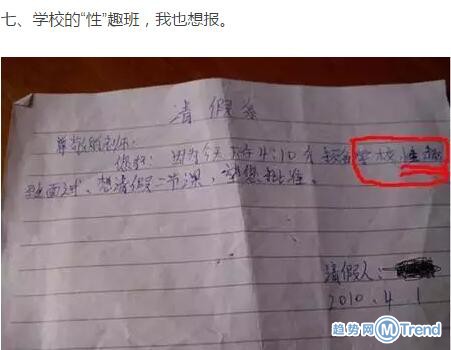 七、学校的“性”趣班，我也想报。
请假条
尊敬的老师：
您好：因为今天下午4:10分我们学校性趣
班面试，想请假一节课，望您批准。
请假人：
2010.4.1
趋势网 MTrend